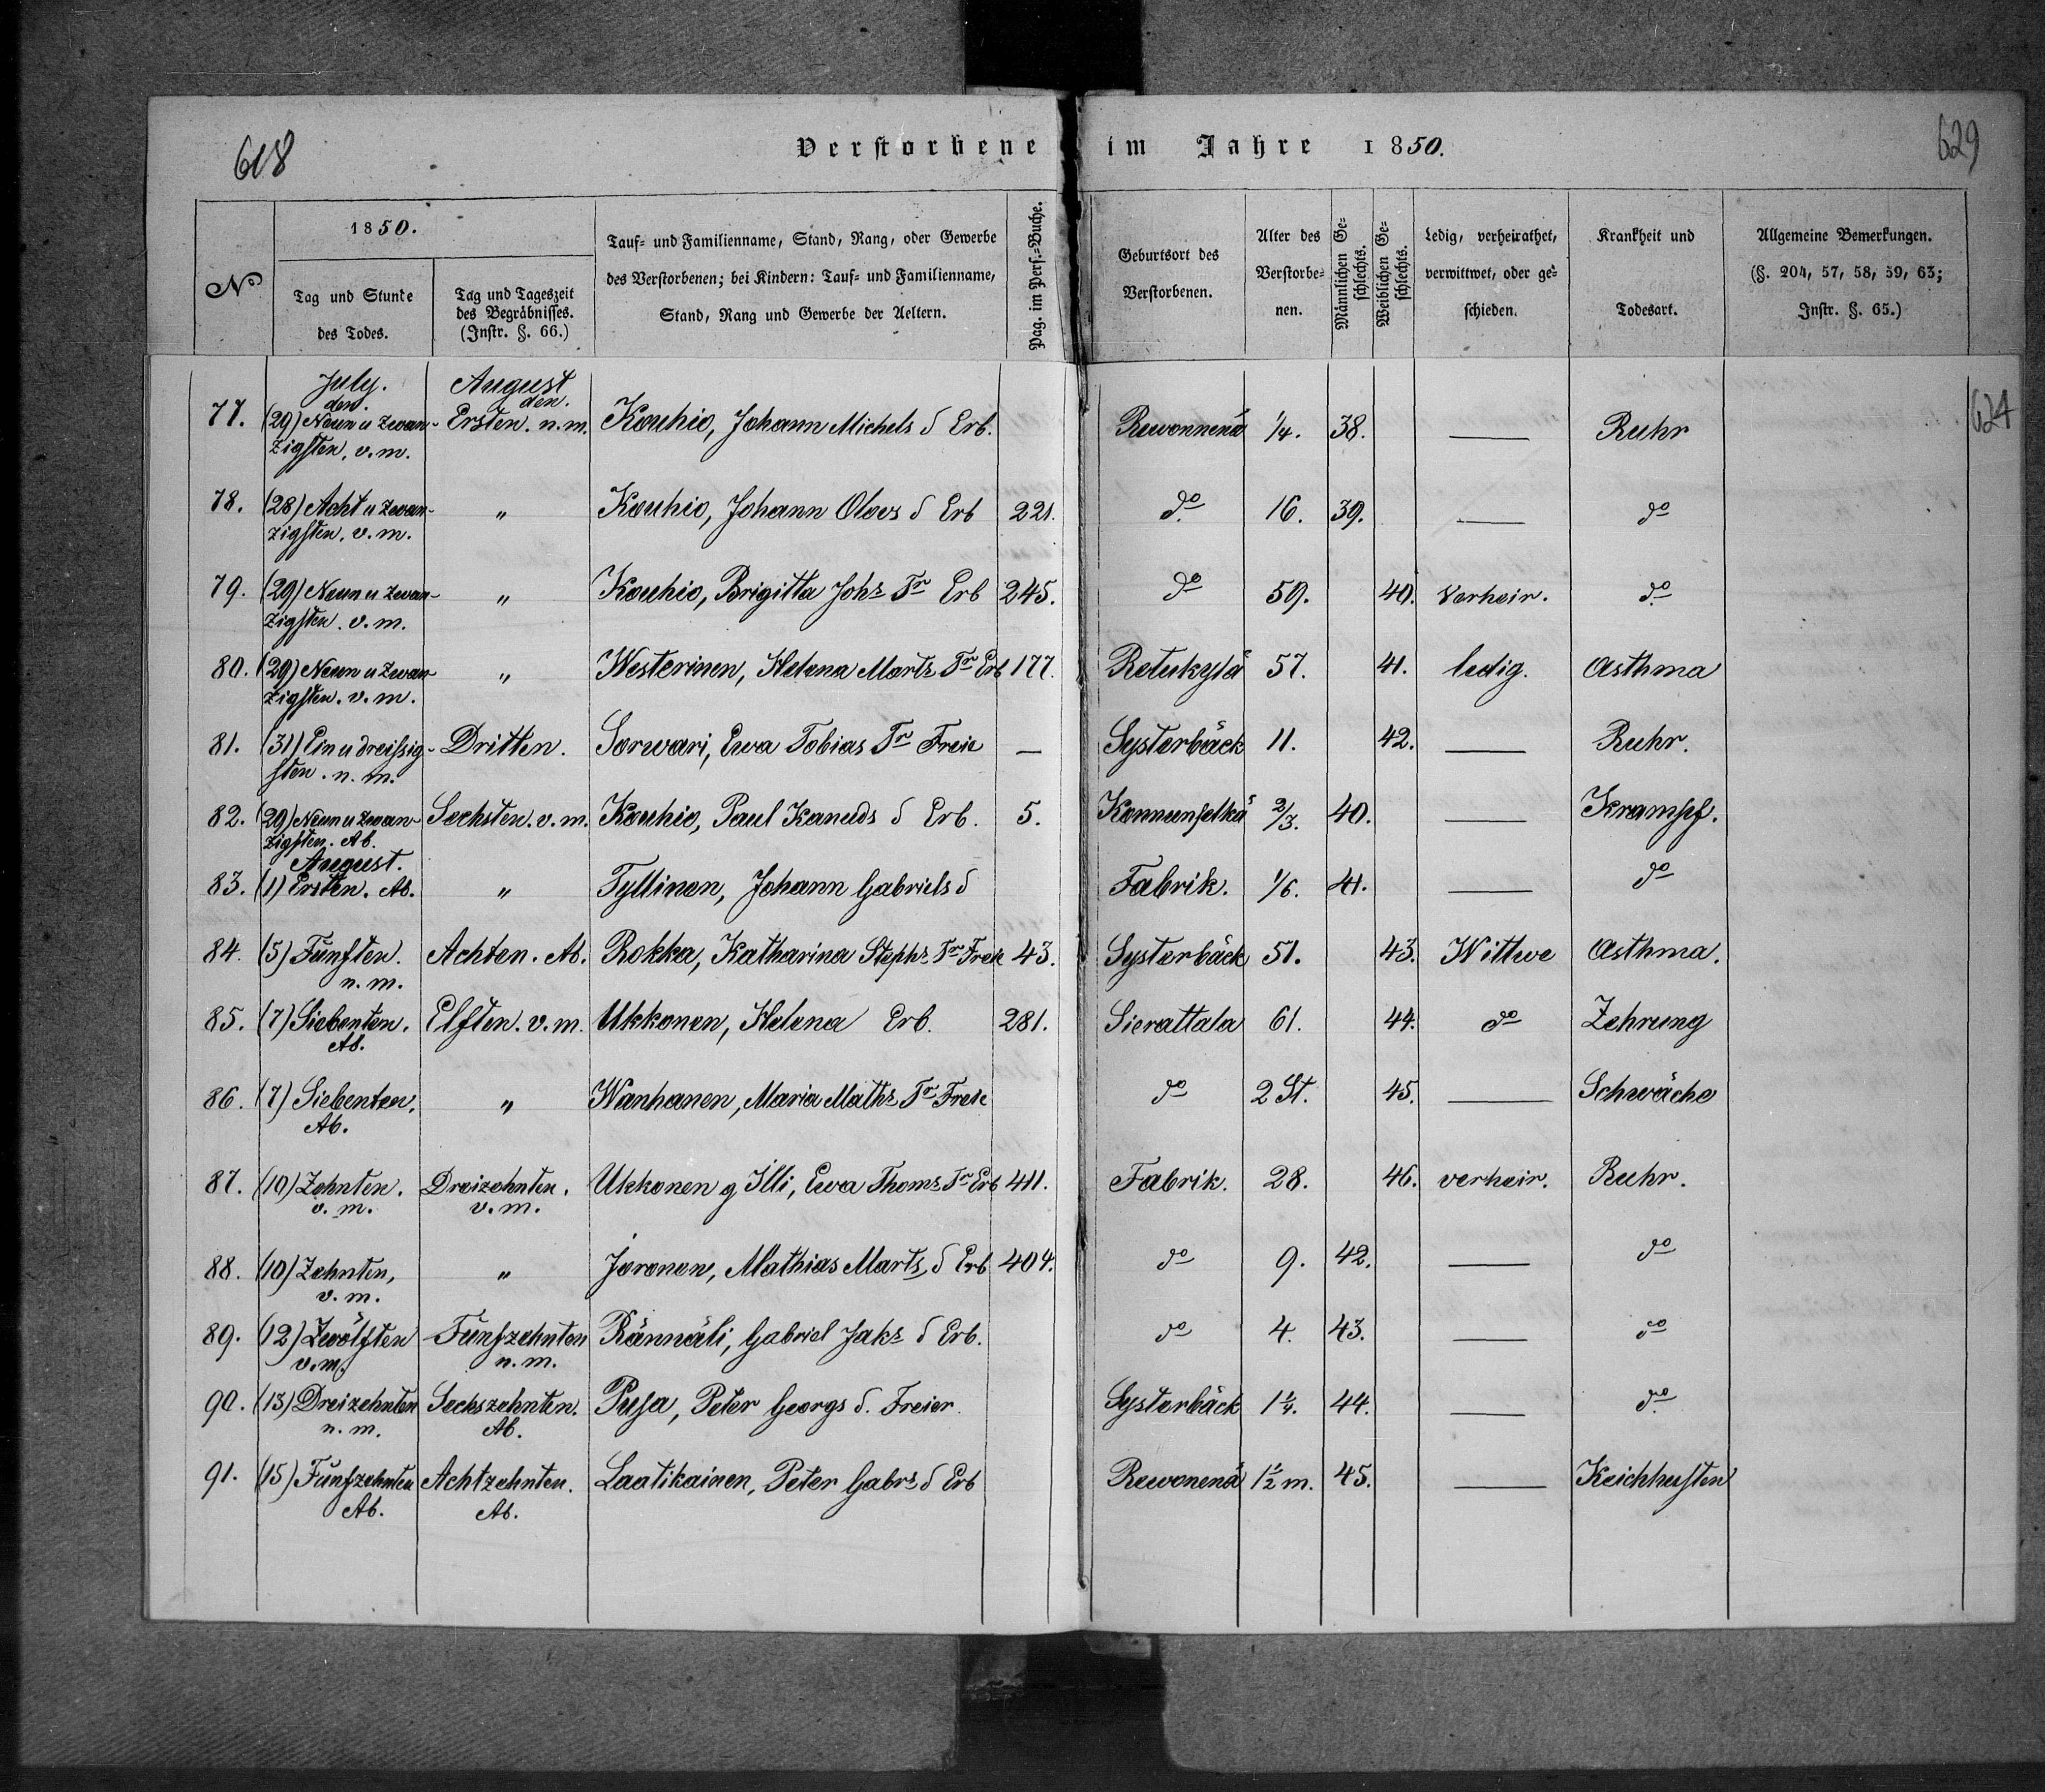 618
Verstorbene im Jahre 1850.
629
624
No
1850.
Tag und Stunde
des Todes.
Tag und Tageszeit
des Begräbnisses.
(Instr. §. 66.)
Tauf- und Familienname, Stand, Rang, oder Gewerbe
des Verstorbenen; bei Kindern: Tauf- und Familienname,
Stand, Rang und Gewerbe der Aeltern.
Pag. im Pers.-Buche.
Geburtsort des
Verstorbenen.
Alter des
Verstorbe-
nen.
Männlichen Ge-
schlechts.
Weiblichen Ge-
schlechts.
Ledig, verheirathet,
verwittwet, oder ge-
schieden.
Krankheit und
Todesart.
Allgemeine Bemerkungen.
(§. 204, 57, 58, 59, 63;
Instr. §. 65.)
July. August
den. den.
77. (29) Neun u zwan- Ersten. n. m. Kouhio, Johann Michels S Erb. Rewonnenä 1/4. 38. — Ruhr
zigsten, v. m.
78. (28) Acht u zwan- „ Kouhio, Johann Olovs S Erb 221. do 16. 39. — do
zigsten, v. m.
79. (29) Neun u zwan- „ Kouhio, Brigitta Johs Tr Erb 245. do 59. 40. verheir. do
zigsten. v. m.
80. (29) Neun u zwan- „ Westerinen, Helena Marts Tr Erb 177. Retukylä 57. 41. ledig. Asthma
zigsten. v. m.
81. (31) Ein u dreissig- Dritten. Sorwari, Ewa Tobias Tr Freie — Systerbäck 11. 42. — Ruhr.
sten. n. m.
82. (29) Neun u zwan- Sechsten. v. m. Kouhio, Paul Kanuds S Erb. 5. Konnunselkä 2/3. 40. — Krampf.
zigsten. Ab.
August.
83. (1) Ersten. Ab. „ Tyllinen, Johann Gabriels S Fabrik. 1/6. 41. — do
84. (5) Fünften. Achten. Ab. Rokka, Katharina Stephs Tr Freie 43. Systerbäck 51. 43. Wittwe Asthma.
n. m.
85. (7) Siebenten. Elften. v. m. Ukkonen, Helena Erb. 281. Sierattala 61. 44. do Zehrung
Ab.
86. (7) Siebenten. „ Wanhanen, Maria Maths Tr Freie do 2 St. 45. — Schwäche
Ab.
87. (10) Zehnten. Dreizehnten. Ukkonen g Illi, Ewa Thoms Tr Erb 411. Fabrik. 28. 46. verheir. Ruhr.
v. m. v. m.
88. (10) Zehnten, „ Joronen, Mathias Marts S Erb 404. do 9. 42. — do
v. m.
89. (12) Zwölften Fünfzehnten Rännäli, Gabriel Jaks S Erb. do 4. 43. — do
v. m. n. m.
90. (13) Dreizehnten Sechszehnten. Pusa, Peter Georgs S. Freier. Systerbäck 1 1/4. 44. — do
n. m. Ab.
91. (15) Fünfzehnten Achtzehnten. Laatikainen, Peter Gabrs S Erb Rewonenä 1 1/2 m. 45. — Keichhusten
Ab. Ab.